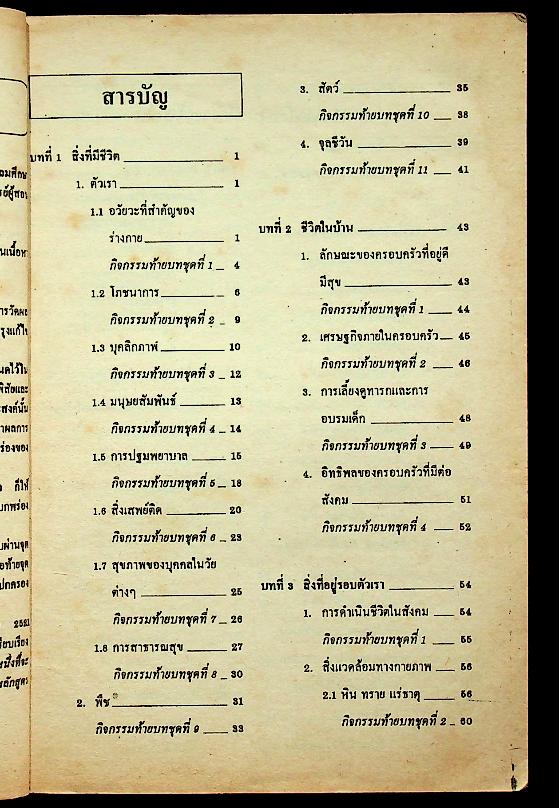 สารบัญ
บทที่ 1 สิ่งที่มีชีวิต 1
1. ตัวเรา 1
1.1 อวัยวะที่สำคัญของ
ร่างกาย 1
กิจกรรมท้ายบทชุดที่ 1 4
1.2 โภชนาการ 6
กิจกรรมท้ายบทชุดที่ 2 9
1.3 บุคลิกภาพ 10
กิจกรรมท้ายบทชุดที่ 3 12
1.4 มนุษยสัมพันธ์ 13
กิจกรรมท้ายบทชุดที่ 4 14
1.5 การปฐมพยาบาล 15
กิจกรรมท้ายบทชุดที่ 5 18
1.6 สิ่งเสพย์ติด 20
กิจกรรมท้ายบทชุดที่ 6 23
1.7 สุขภาพของบุคคลในวัย
ต่างๆ 25
กิจกรรมท้ายบทชุดที่ 7 26
1.8 การสาธารณสุข 27
กิจกรรมท้ายบทชุดที่ 8 30
2. พืช 31
กิจกรรมท้ายบทชุดที่ 9 33
3. สัตว์ 35
กิจกรรมท้ายบทชุดที่ 10 38
4. จุลชีวัน 39
กิจกรรมท้ายบทชุดที่ 11 41
บทที่ 2 ชีวิตในบ้าน 43
1. ลักษณะของครอบครัวที่อยู่ดี
มีสุข 43
กิจกรรมท้ายบทชุดที่ 1 44
2. เศรษฐกิจภายในครอบครัว 45
กิจกรรมท้ายบทชุดที่ 2 46
3. การเลี้ยงดูทารกและการ
อบรมเด็ก 48
กิจกรรมท้ายบทชุดที่ 3 49
4. อิทธิพลของครอบครัวที่มีต่อ
สังคม 51
กิจกรรมท้ายบทชุดที่ 4 52
บทที่ 3 สิ่งที่อยู่รอบตัวเรา 54
1. การดำเนินชีวิตในสังคม 54
กิจกรรมท้ายบทชุดที่ 1 55
2. สิ่งแวดล้อมทางกายภาพ 56
2.1 หิน ทราย แร่ธาตุ 56
กิจกรรมท้ายบทชุดที่ 2 60